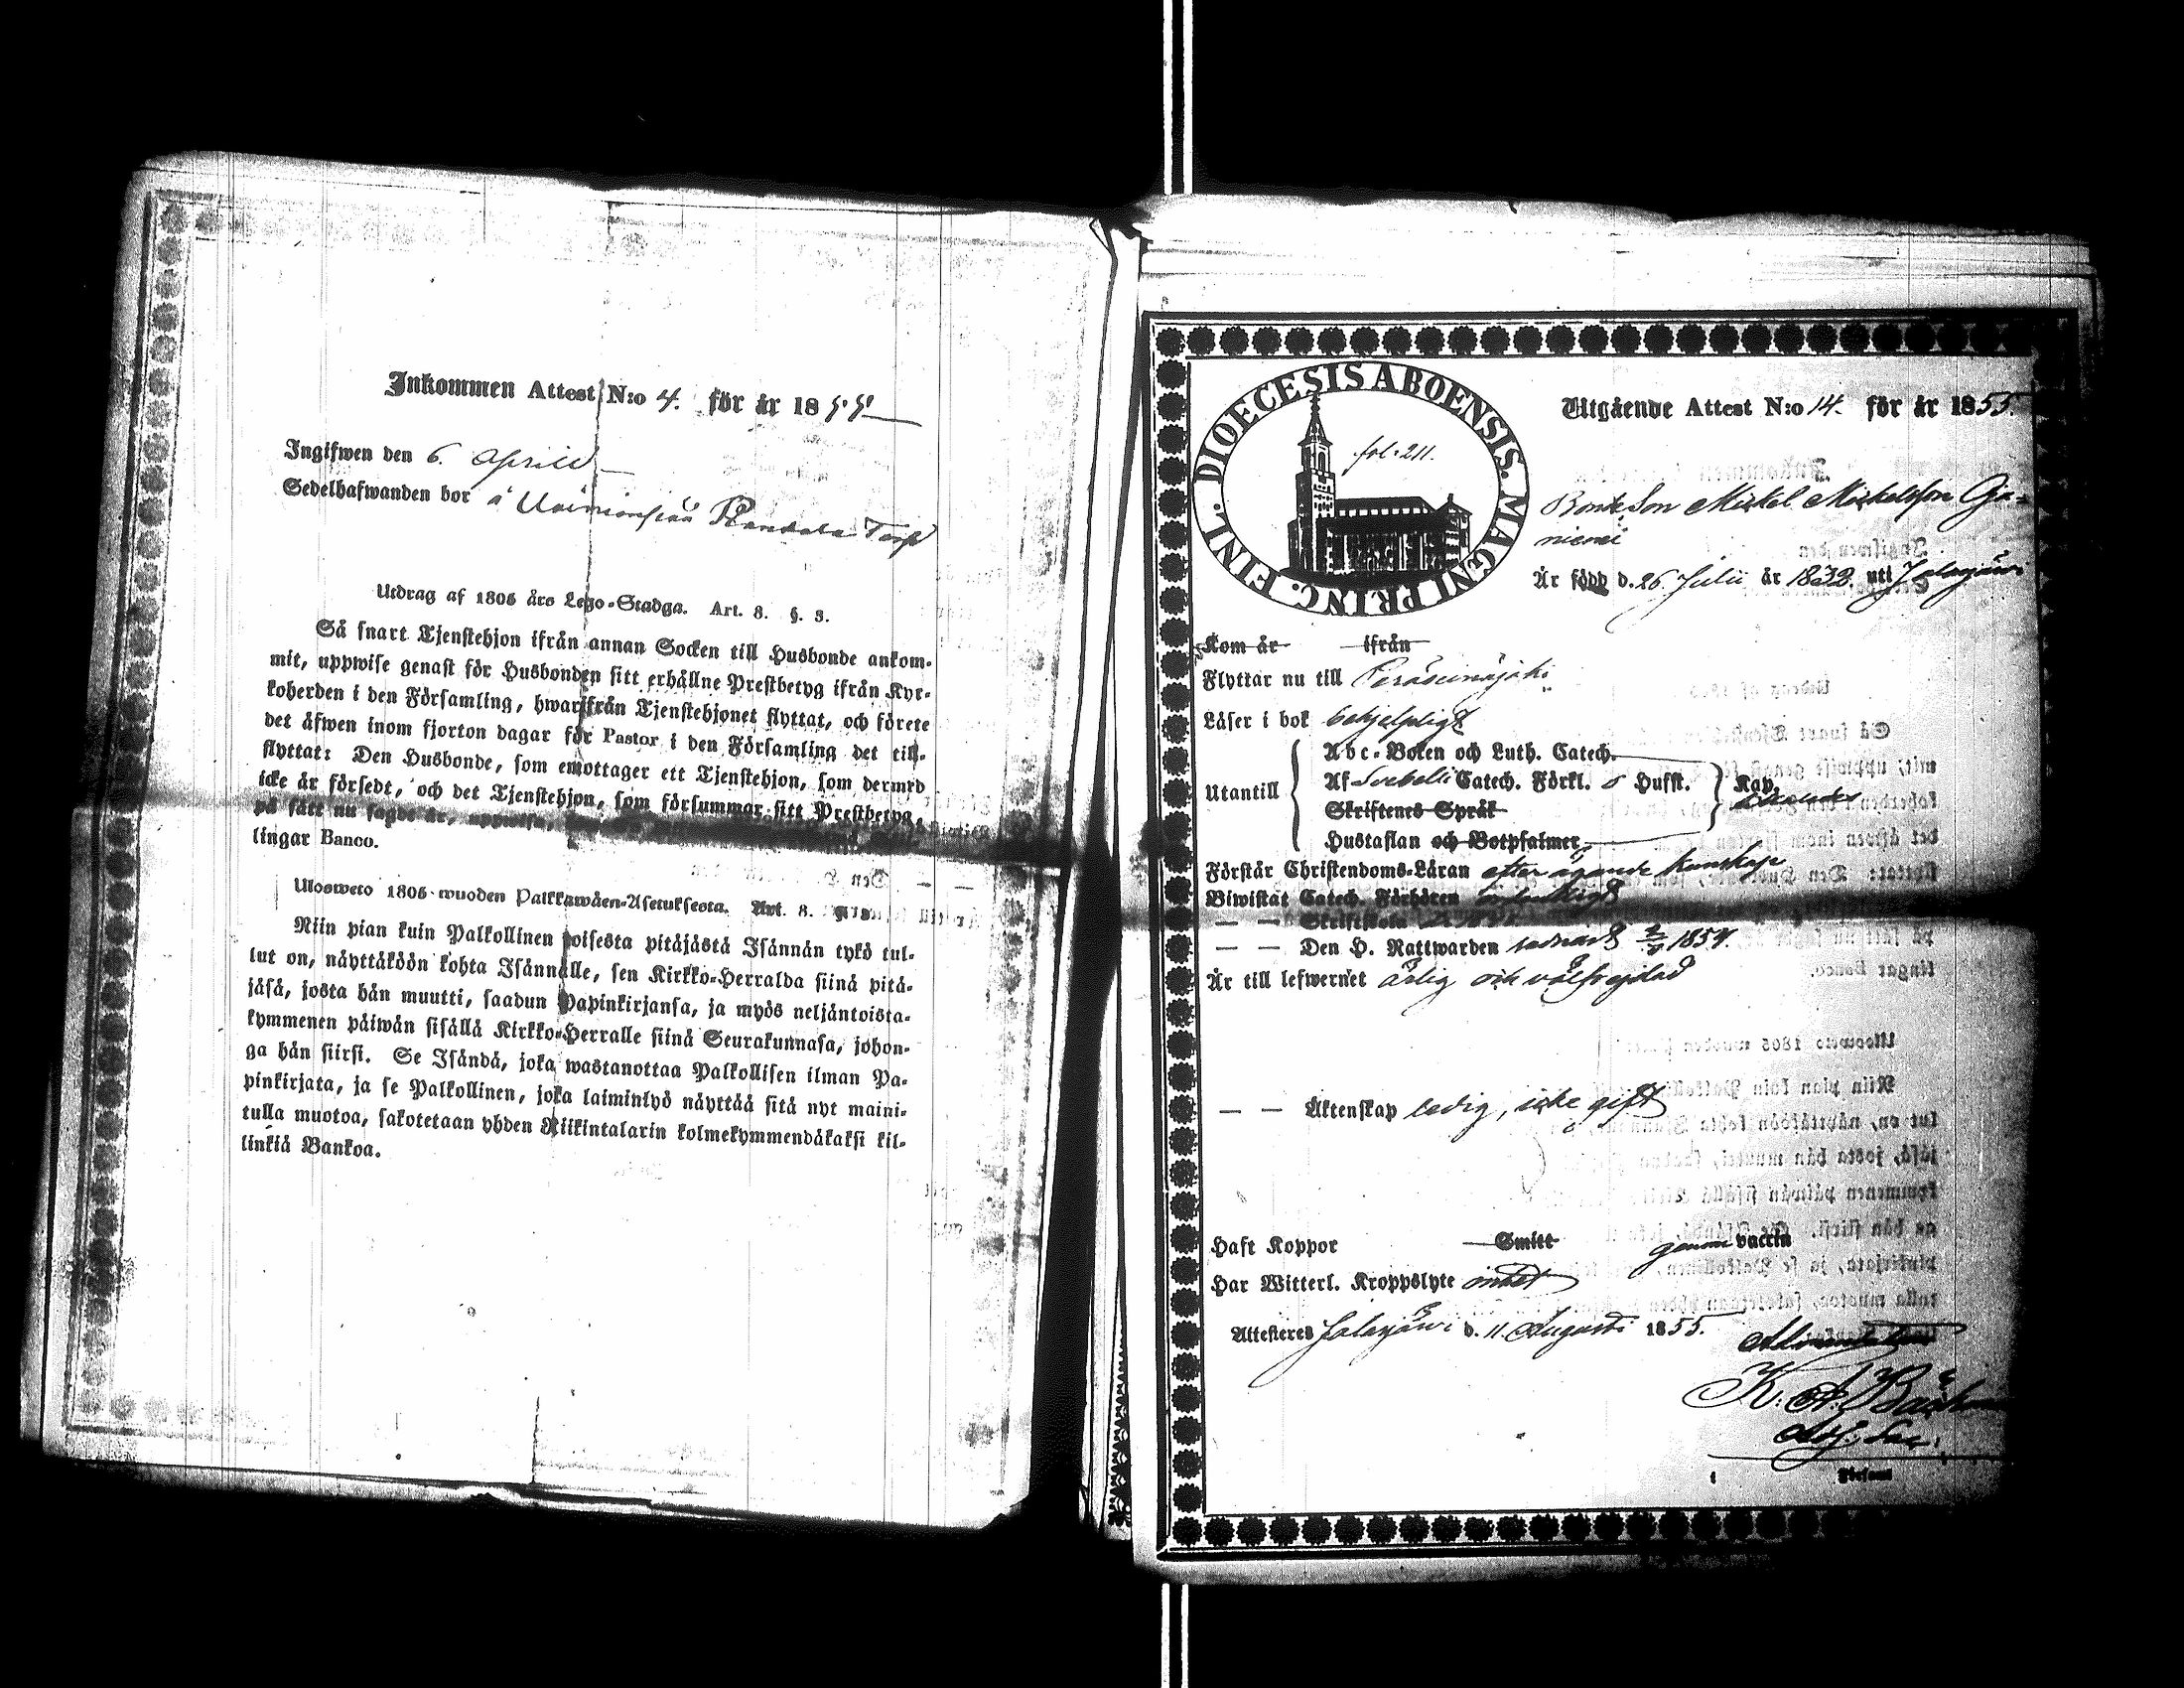 Inkommen Attest N:o 4. för år 1855
Ingifwen den 6. Aprill
Sedelhafwanden bor å Torp
Utdrag af 1805 års Lego-Stadga. Art. 8. §. 3.
Så snart Tjenstehjon ifrån annan Socken till Husbonde ankom-
mit, uppwise genast för Husbonden sitt erhållne Prestbetyg ifrån Kyr-
koherden i den Församling, hwarifrån Tjenstehjonet flyttat, och förete
det äfwen inom fjorton dagar för Pastor i den Församling det till-
flyttat: Den Husbonde, som emottager ett Tjenstehjon, som dermed
icke är försedt, och det Tjenstehjon, som försummar sitt Prestbetyg,
på sätt nu sagdt är, uppwisa,
lingar Banco.
Ulosweto 1805 wuoden Palkkawäen-Asetuksesta. Art. 8. §. 3.
Niin pian kuin Palkollinen toisesta pitäjästä Isännän tykö tul-
lut on, näyttäköön kohta Isännälle, sen Kirkko-Herralda siinä pitä-
jäsä, josta hän muutti, saadun Papinkirjansa, ja myös neljäntoista-
kymmenen päiwän sisällä Kirkko-Herralle siinä Seurakunnasa, johon-
ga hän siirsi. Se Isändä, joka wastanottaa Palkollisen ilman Pa-
pinkirjata, ja se Palkollinen, joka laiminlyö näyttää sitä nyt maini-
tulla muotoa, sakotetaan yhden Riikintalarin kolmekymmendäkaksi kil-
linkiä Bankoa.
DIOECESIS ABOENSIS. MAGNI PRINC. FINL.
fol. 211.
Utgående Attest N:o 14. för år 1855.
BondeSon Mickel Mickelsson Ga-
niemi
Är född d. 26 Julii år 1832. uti Jalasjärvi
Kom år ifrån
Flyttar nu till Peräseinäjoki
Läser i bok behjelpligt
Utantill
Abc-Boken och Luth. Catech.
Af Svebelii Catech. Förkl. o Hufst. Kap.
Skriftenes Språk
Hustaflan och Botpsalmer
Förstår Christendoms-Läran efter ägande kunskap
Biwistat Catech. Förhören ordentligt
— — Skriftskola
— — Den H. Nattwarden 1854.
Är till lefwernet ärlig och välfrejdad
— — Äktenskap ledig, icke gift
Haft Koppor Smitt genom vaccin
Har Witterl. Kroppslyte intet
Attesteres Jalasjärvi d. 11. Augusti 1855.
K: A: Bäckman
Adj: Sac:
i Församl